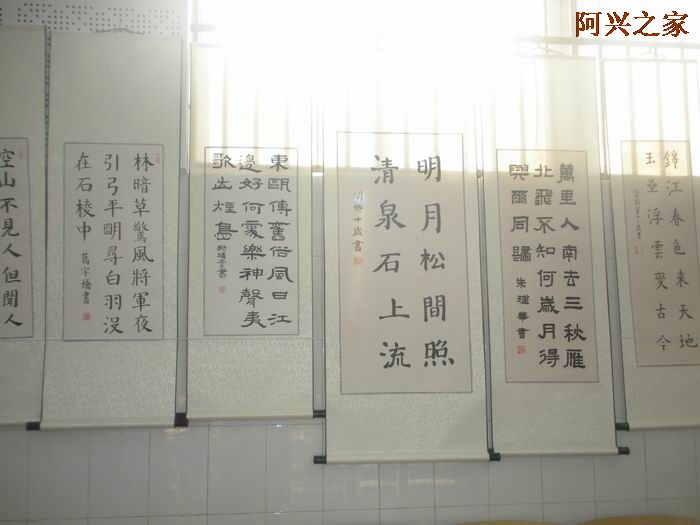 阿兴之家
錦江春色來天地
玉壘浮雲變古今
萬里人南去三秋雁
北飛不知何歲月得
與爾同歸
朱瓊華書
明月松間照
清泉石上流
十歲書
東甌傳舊俗風日江
邊好何處樂神聲夷
歌出煙島
林暗草驚風將軍夜
引弓平明尋白羽没
在石棱中
葛宇橋書
空山不見人但聞人